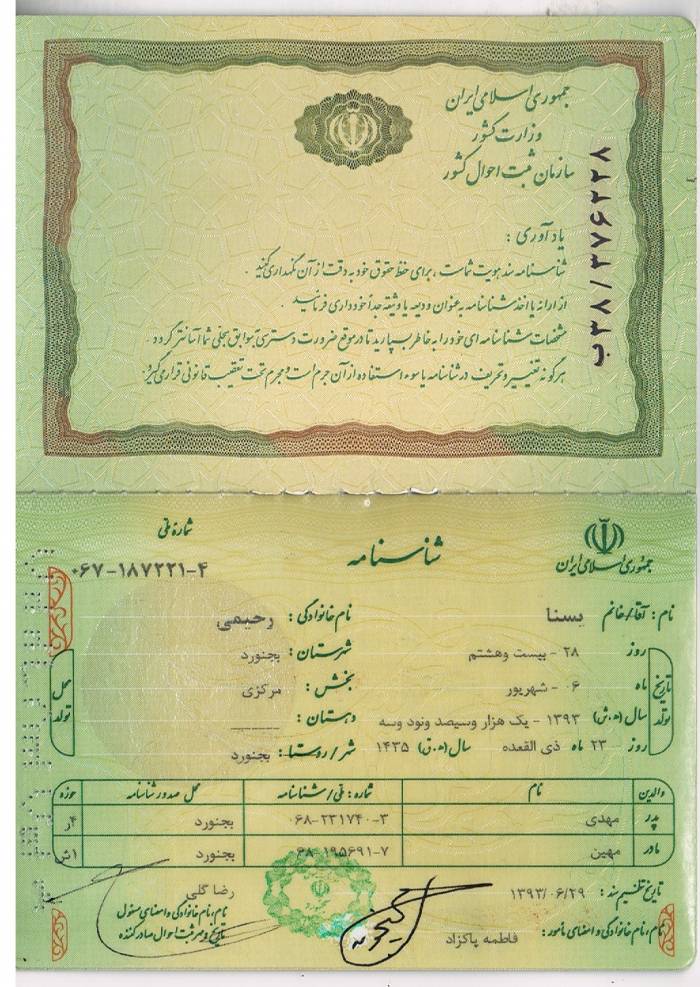 جمهوری اسلامی ایران
وزارت کشور
سازمان ثبت احوال کشور
ب۳۸/۳۷۶۲۲۸
یادآوری :
شناسنامه سند هویت شماست ، برای حفظ حقوق خود به دقت از آن نگهداری کنید .
از ارائه یا اخذ شناسنامه به عنوان ودیعه یا وثیقه جداً خودداری فرمائید .
مشخصات شناسنامه ای خود را به خاطر بسپارید تا در موقع ضرورت دسترسی به سوابق سجلی شما آسانتر گردد .
هرگونه تغییر و تحریف در شناسنامه یا سوء استفاده از آن جرم است و مجرم تحت تعقیب قانونی قرار می گیرد.
جمهوری اسلامی ایران
شناسنامه
شماره ملی
۰۶۷-۱۸۷۲۲۱-۴
نام : آقا/خانم یسنا نام خانوادگی : رحیمی
تاریخ تولد
روز ۲۸ - بیست وهشتم
ماه ۰۶ - شهریور
سال (ه.ش) ۱۳۹۳ - یک هزار وسیصد ونود وسه
روز ۲۳ ماه ذی القعده سال (ه.ق) ۱۴۳۵
محل تولد
شهرستان : بجنورد
بخش : مرکزی
دهستان : ______
شهر / روستا : بجنورد
والدین نام شماره : ملی / شناسنامه محل صدور شناسنامه حوزه
پدر مهدی ۰۶۸-۲۳۱۷۴۰-۳ بجنورد ۴ر
مادر مهین ۰۶۸-۱۹۵۶۹۱-۷ بجنورد ۱ش
تاریخ تنظیم سند : ۱۳۹۳/۰۶/۲۹
نام ، نام خانوادگی و امضای مأمور : فاطمه پاکزاد
رضا گلی
نام ، نام خانوادگی و امضای مسئول
تاریخ و مهر ثبت احوال صادر کننده